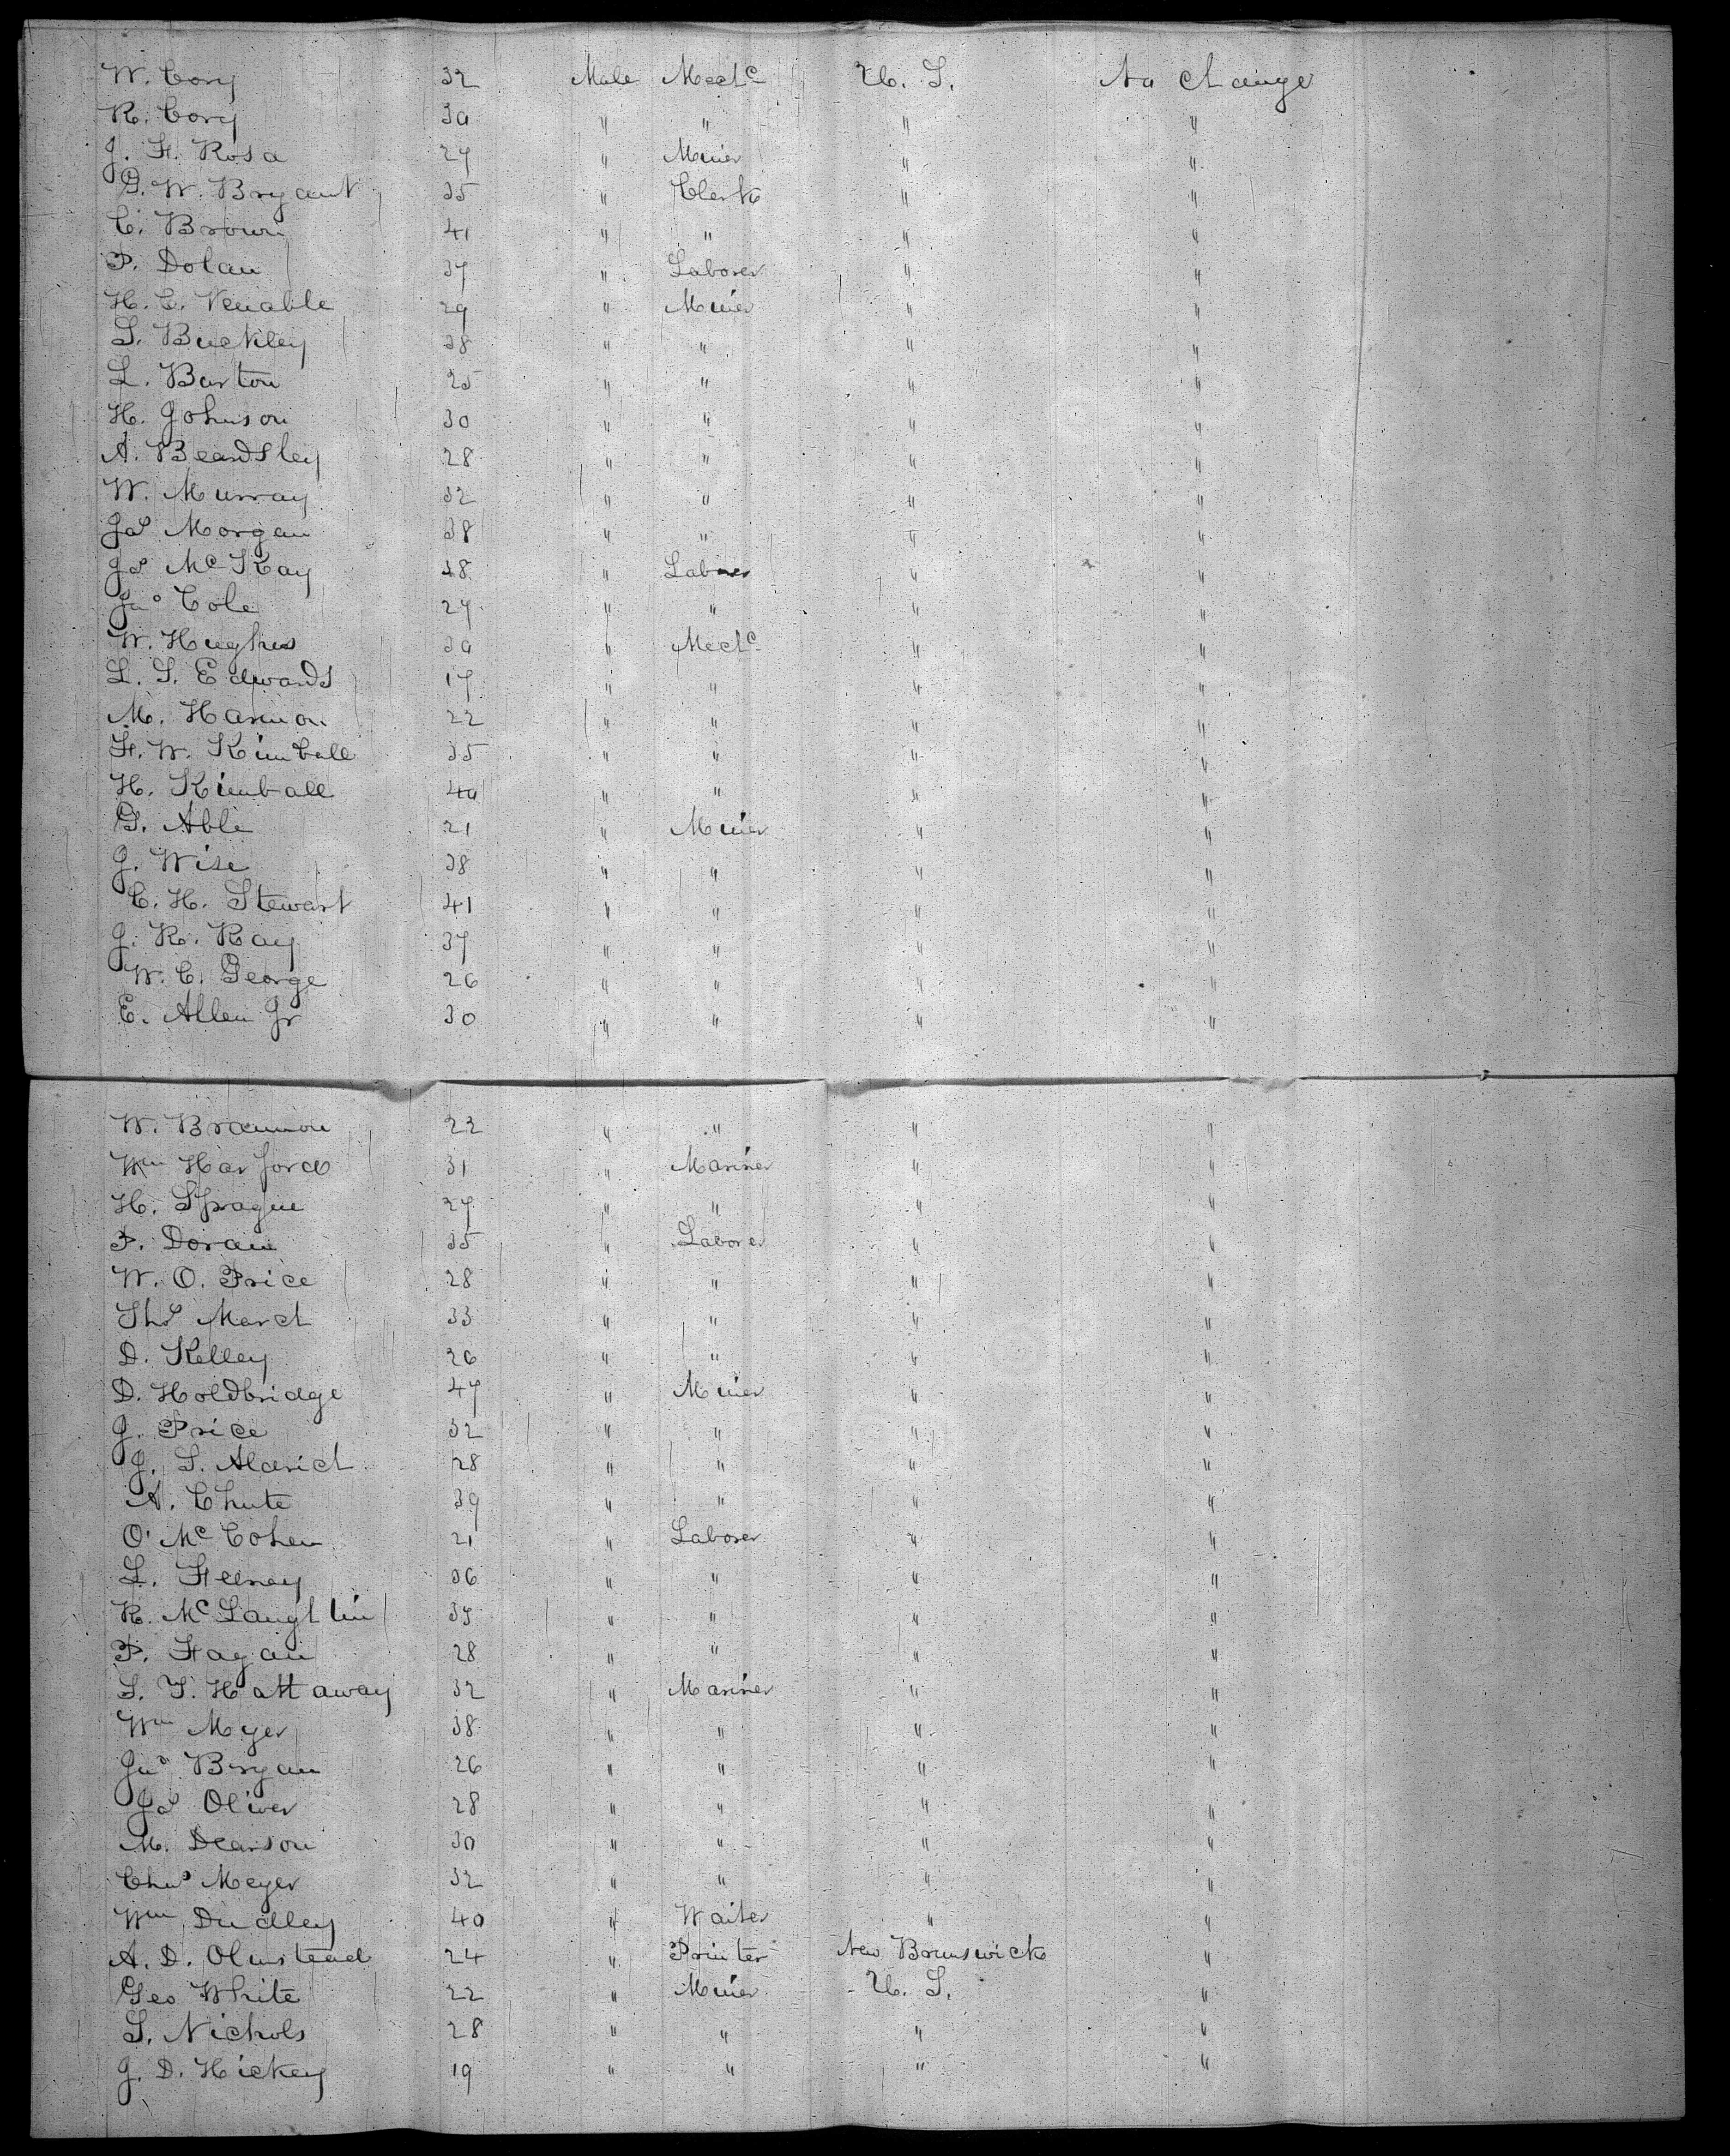 W. Cory 32 Male Mechc U. S. No Change
R. Cory 30 " " " "
J. F. Rosa 27 " Miner " "
G. W. Bryant 35 " Clerk " "
C. Brown 41 " " " "
P. Dolan 37 " Laborer " "
H. C. Venable 29 " Miner " "
S. Buckley 38 " " " "
L. Barton 25 " " " "
H. Johnson 30 " " " "
A. Beardsley 28 " " " "
W. Murray 32 " " " "
Jas Morgan 38 " " " "
Js McKay 48 " Laborer " "
Jno Cole 27 " " " "
W. Hughes 30 " Mechc " "
L. S. Edwards 17 " " " "
M. Harmon 22 " " " "
F. W. Kimball 35 " " " "
H. Kimball 40 " " " "
G. Able 21 " Miner " "
J. Wise 38 " " " "
C. H. Stewart 41 " " " "
J. R. Ray 37 " " " "
W. C. George 26 " " " "
E. Allen Jr 30 " " " "
W. Brannon 22 " " " "
Wm Harford 31 " Mariner " "
H. Sprague 27 " " " "
P. Doran 35 " Laborer " "
W. O. Price 28 " " " "
Ths March 33 " " " "
D. Kelley 26 " " " "
D. Holdbridge 47 " Miner " "
J. Price 32 " " " "
J. S. Aldrich 28 " " " "
A. Chute 39 " " " "
O' McCohen 21 " Laborer " "
L. Feeney 36 " " " "
R. McLaughlin 37 " " " "
P. Fagan 28 " " " "
S. T. Hattaway 32 " Mariner " "
Wm Meyer 38 " " " "
Jno Bryan 26 " " " "
Js Oliver 28 " " " "
M. Dearson 30 " " " "
Chas Meyer 32 " " " "
Wm Dudley 40 " Waiter " "
A. D. Olmstead 24 " Printer New Brunswick "
Geo White 22 " Miner U. S. "
S. Nichols 28 " " " "
J. D. Hickey 19 " " " "